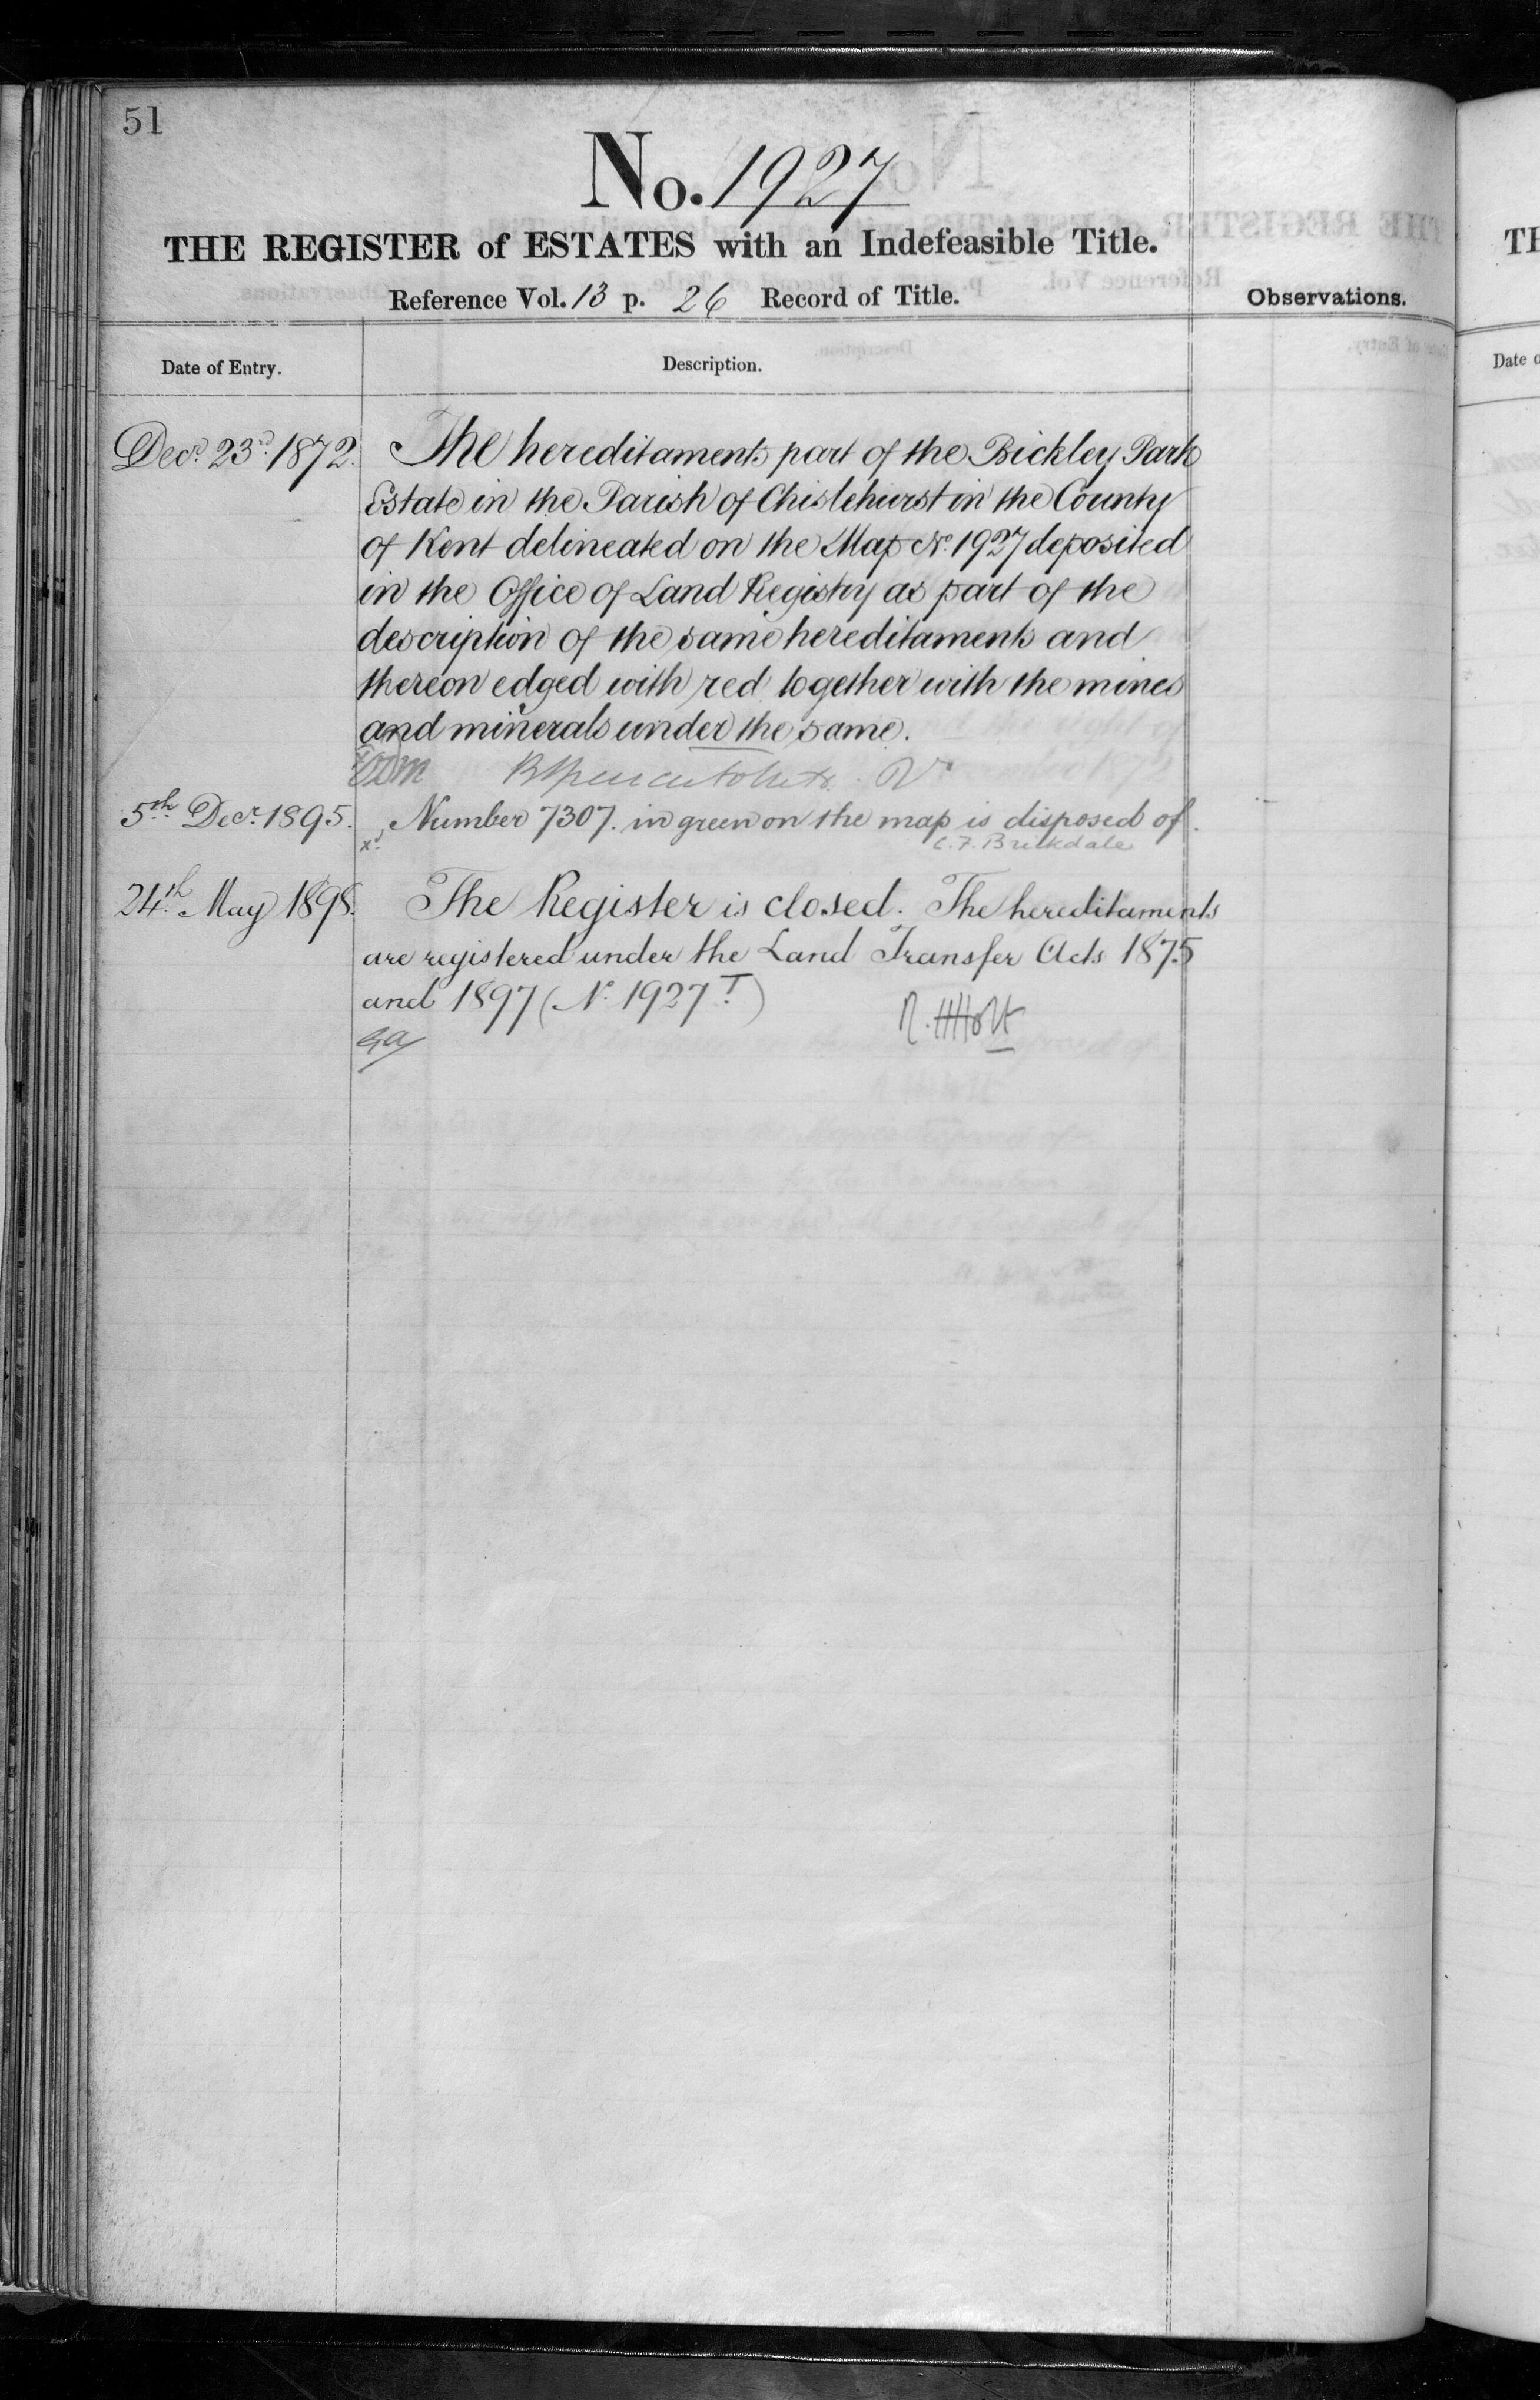 51
No. 1927
THE REGISTER of ESTATES with an Indefeasible Title.
Reference Vol. 13 p. 26 Record of Title.
Observations.
Date of Entry.
Description.
Decr. 23rd 1872.
The hereditaments part of the Bickley Park
Estate in the Parish of Chislehurst in the County
of Kent delineated on the Map No. 1927 deposited
in the Office of Land Registry as part of the
description of the same hereditaments and
thereon edged with red together with the mines
and minerals under the same.
5th Decr. 1895.
Number 7307. in green on the map is disposed of.
C. F. Brickdale
24th May 1898.
The Register is closed. The hereditaments
are registered under the Land Transfer Acts 1875
and 1897 (No. 1927 T)
R. H Holt
TH
Date o